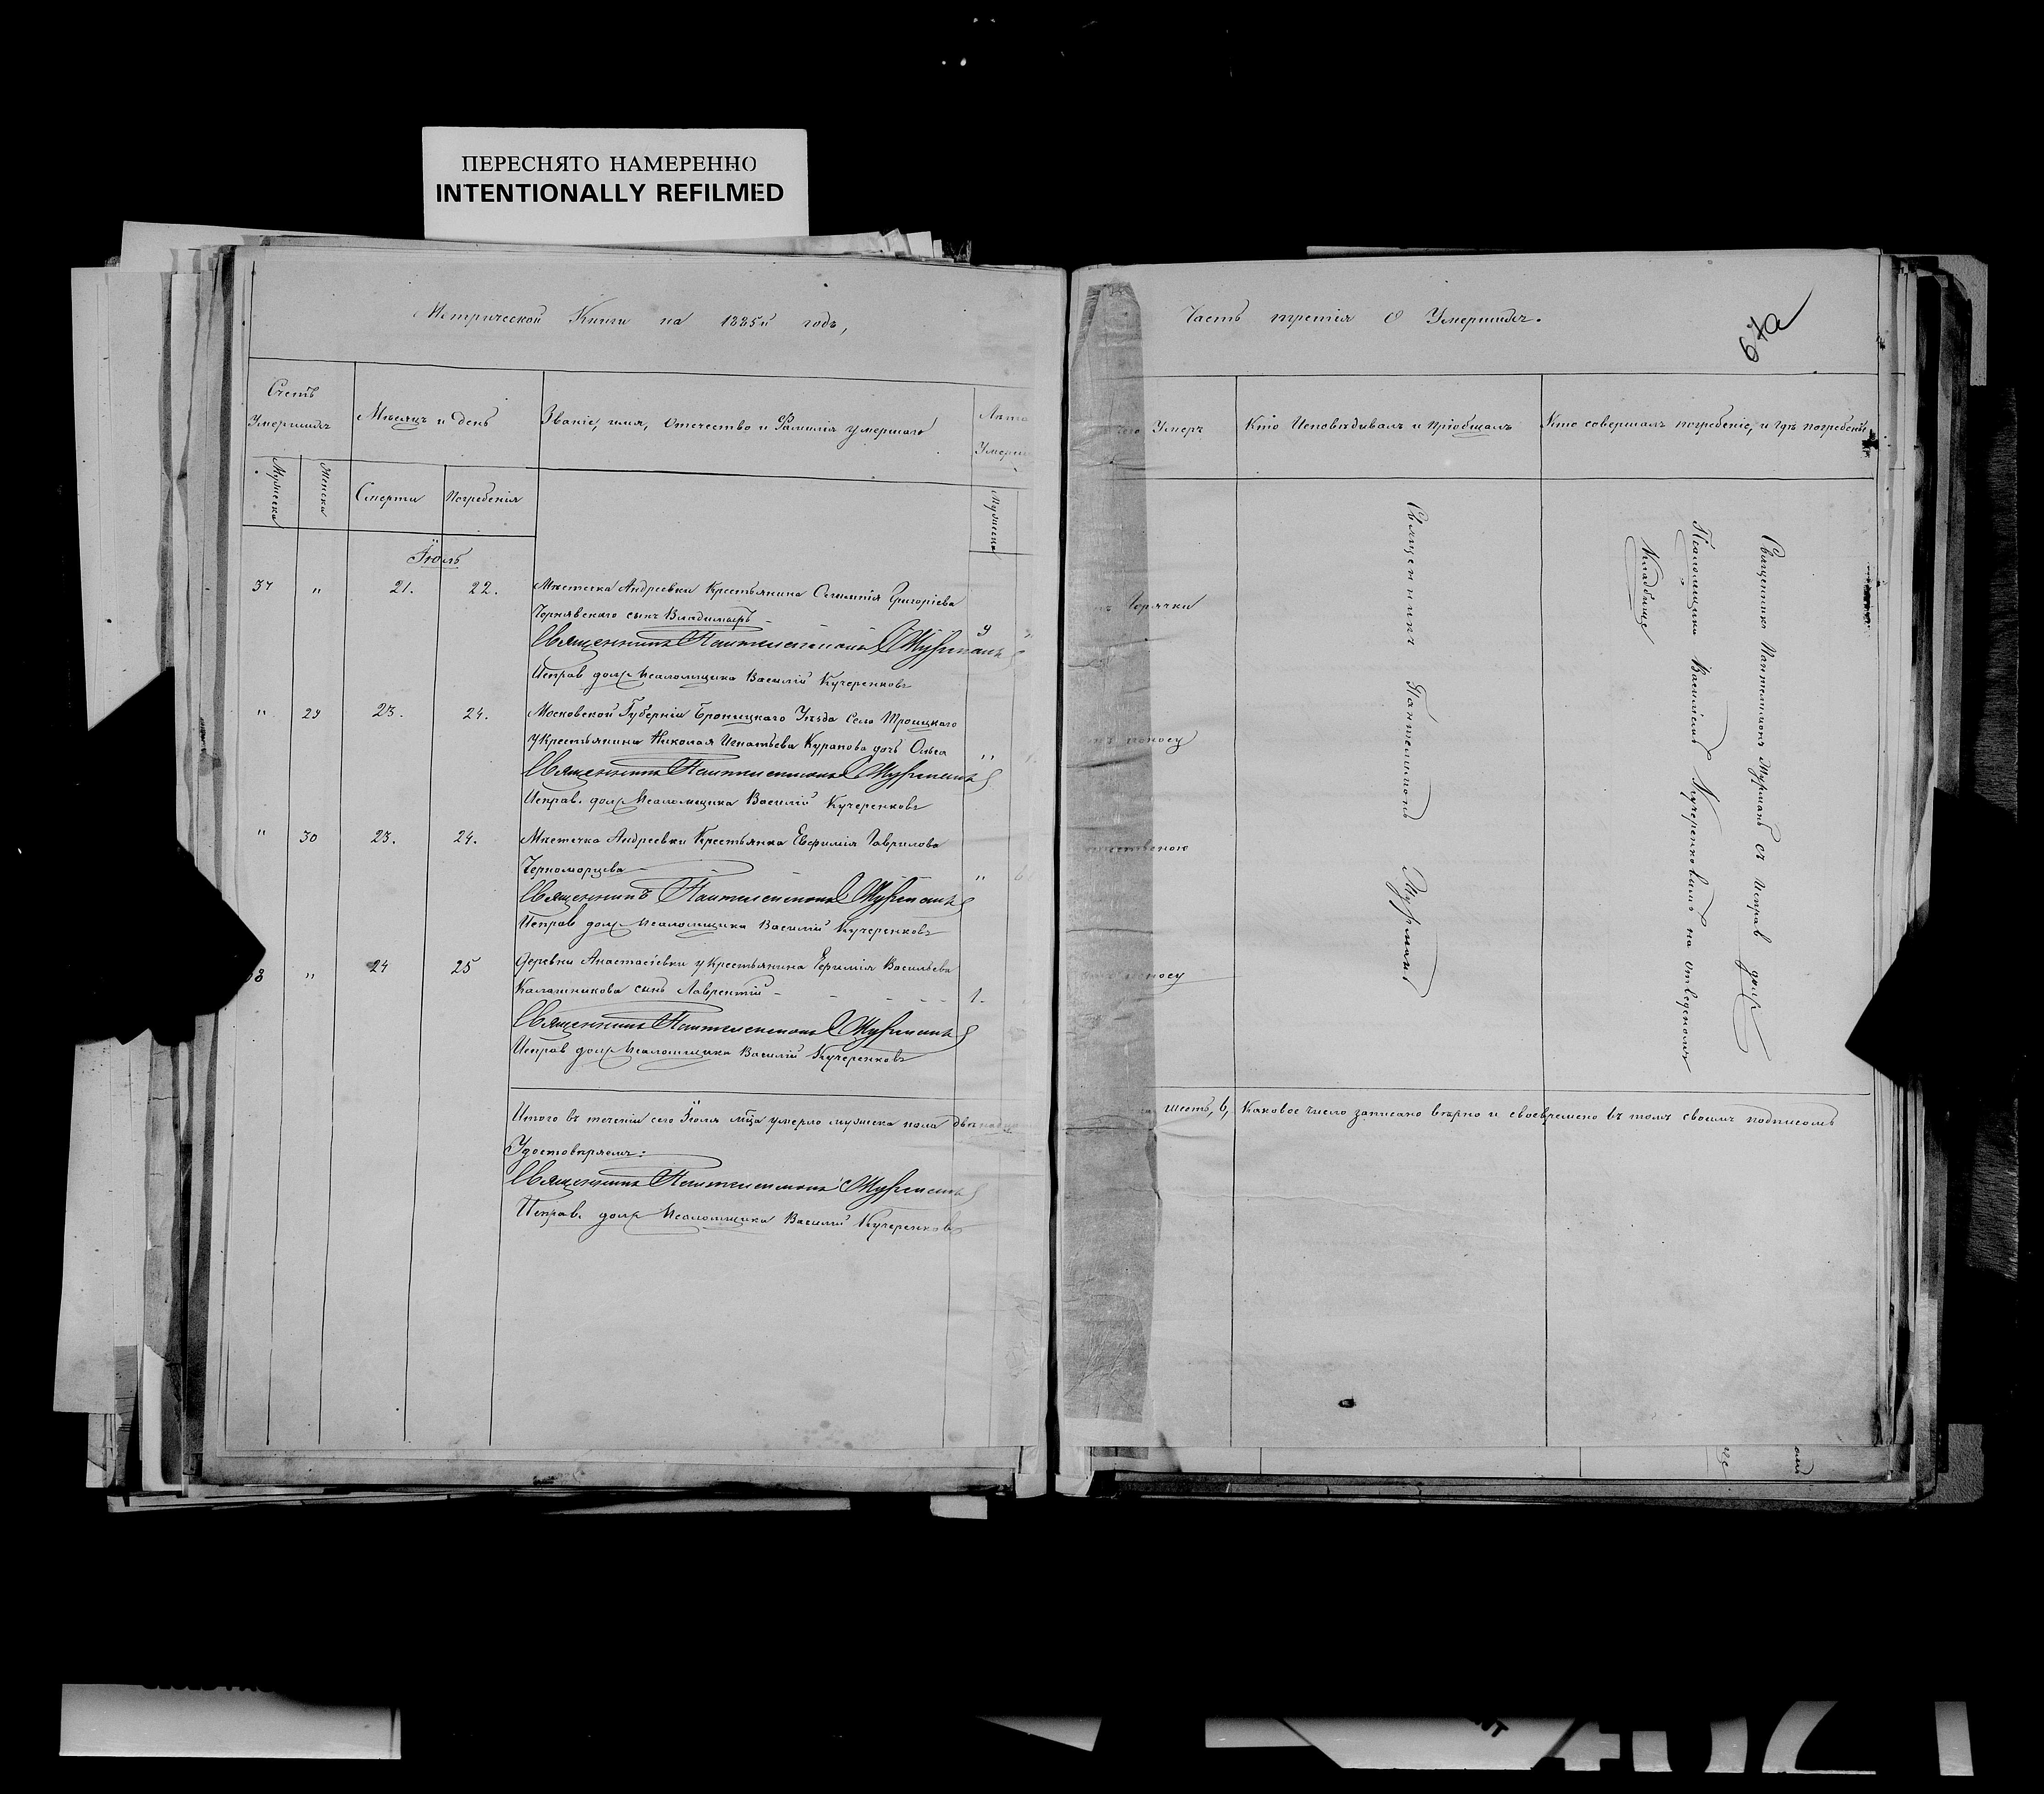 ПЕРЕСНЯТО НАМЕРЕННО
INTENTIONALLY REFILMED
Метрической Книги на 1885й годъ,
Счетъ Умершихъ
Мѣсяцъ и день
Званіе, имя, отчество и Фамилія умершаго
Лѣта
Мужеска
Женска
Смерти
Погребенія
Мужеска
Іюль
37 " 21. 22. Мѣстечка Андреевки Крестьянина Григоріева
Чернявскаго сынъ Владимиръ
Священникъ Пантелеимонъ Мурманъ
Исправ долж Псаломщика Василій Кучеренковъ
" 29 23. 24. Московской Губерніи Броницкаго Уѣзда Село Троицкаго
у Крестьянина Николая Игнатьева Курапова дочь Ольга "
Священникъ Пантелеимонъ Мурманъ
Исправ. долж Псаломщика Василій Кучеренковъ
" 30 23. 24. Мѣстечка Андреевки Крестьянка Евфимія Гаврилова
Черноморцева "
Священникъ Пантелеимонъ Мурманъ
Исправ долж Псаломщика Василій Кучеренковъ
38 " 24 25 Деревни Анастасіевки у Крестьянина Ефимія Васильева
Калашникова сынъ Лаврентій 1.
Священникъ Пантелеимонъ Мурманъ
Исправ долж Псаломщика Василій Кучеренковъ
Итого въ теченіи сего Іюля мца умерло мужеска пола
Удостовѣряемъ:
Священникъ Пантелеимонъ Мурманъ
Исправ. долж Псаломщика Василій Кучеренковъ
Часть третія О Умершихъ.
67а
чего Умеръ
Кто Исповѣдывалъ и пріобщалъ
Кто совершалъ погребеніе, и гдѣ погребены
Горячки
поносу
поносу
Священникъ Пантелимонъ Мурманъ
Священникъ Пантелимонъ Мурманъ съ Исправ долж
Псаломщика Василіемъ Кучеренковымъ на отведеномъ
Кладбище
шесть, 6, Каковое число записано вѣрно и своевремено въ томъ своимъ подписомъ